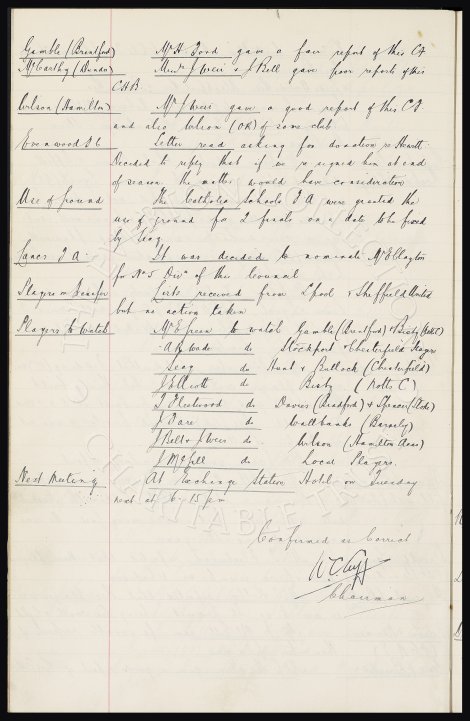 Gamble (Brentford) Mr H. Ford gave a fair report of this CF
McCarthy (Dundee) Messrs J Weir & J Bell gave poor reports of this
CHB
Wilson (Hamilton) Mr J Weir gave a good report of this CF
and also Wilson (OR) of same club
Evenwood FC Letter read asking for donation re Hewitt.
Decided to reply that if we re signed him at end
of season the matter would have consideration
Use of Ground The Catholic Schools F A were granted the
use of ground for 2 finals on a date to be fixed
by Secy
Lancs F A. It was decided to nominate Mr
for No 5 Divn of the Council
Players on Transfer Lists received from L'pool & Sheffield United
but no action taken
Players to Watch Mr E Green to watch Gamble (Brentford) & Bisby (Notts C)
A Wade do Stockport v Chesterfield players
Secy do Hunt & Bullock (Chesterfield)
J Elliott do Bisby (Notts C)
T Fleetwood do Davies (Bradford) & Spencer (Stoke)
J Fare do Wallbanks (Barnsley)
J Bell & J Weir do Wilson (Hamilton Acas)
J McGill do Local Players.
Next Meeting At Exchange Station Hotel on Tuesday
next at 6-15 pm
Confirmed as Correct
W.C. Cuff
Chairman